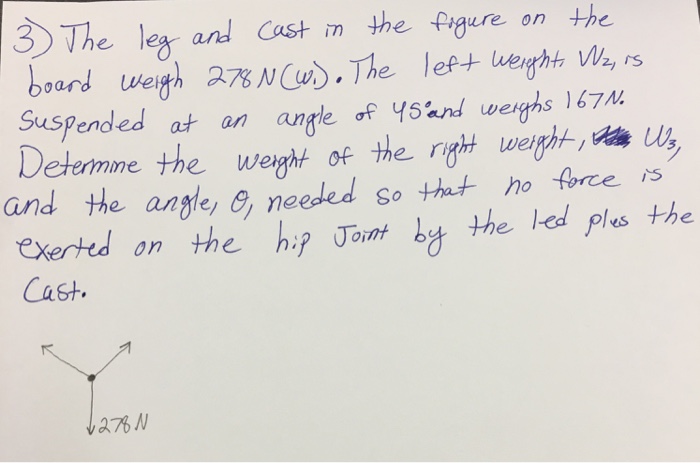 3) The leg and cast in the figure on the
board weigh 278 N (w₁). The left weight, W₂, is
suspended at an angle of 45° and weighs 167 N.
Determine the weight of the right weight, W₃,
and the angle, θ, needed so that no force is
exerted on the hip Joint by the led plus the
Cast.
278 N